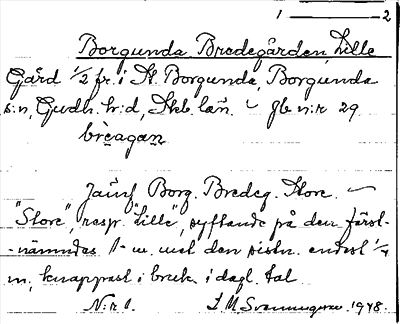 1 — 2
Borgunda Bredegården, Lille
Gård 1/2 fr. i St. Borgunda, Borgunda
s:n, Gudh. h:d, Skb. län. gb n:r 29
brèagan
Jämf Borg. Bredeg. Store.
"Store", resp. "Lille", syftande på den först-
-nämndas 1- m. mot den sistn. endast 1/4
m, knappast i bruk i dagl. tal
N:r 1. 1948